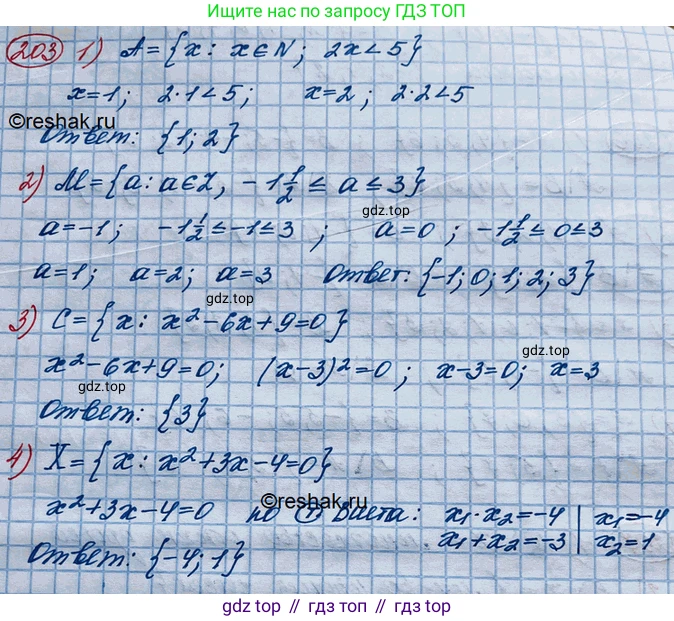 Ищите ответы по запросу ГДЗ ТОП
203 1) A = {x: x∈N; 2x<5}
x=1; 2·1<5; x=2; 2·2<5
©reshak.ru
Ответ: {1; 2}
2) M = {a: a∈Z, -1 1/2 ≤ a ≤ 3}
gdz.top
a=-1; -1 1/2 ≤ -1 ≤ 3; a=0; -1 1/2 ≤ 0 ≤ 3
a=1; a=2; a=3 Ответ: {-1; 0; 1; 2; 3}
gdz.top
3) C = {x: x²-6x+9=0}
gdz.top
x²-6x+9=0; (x-3)²=0; x-3=0; x=3
gdz.top
Ответ: {3}
4) X = {x: x²+3x-4=0}
©reshak.ru
x²+3x-4=0 по Т Виета: x₁·x₂=-4 | x₁=-4
x₁+x₂=-3 | x₂=1
Ответ: {-4; 1}
gdz top // гдз топ // gdz top